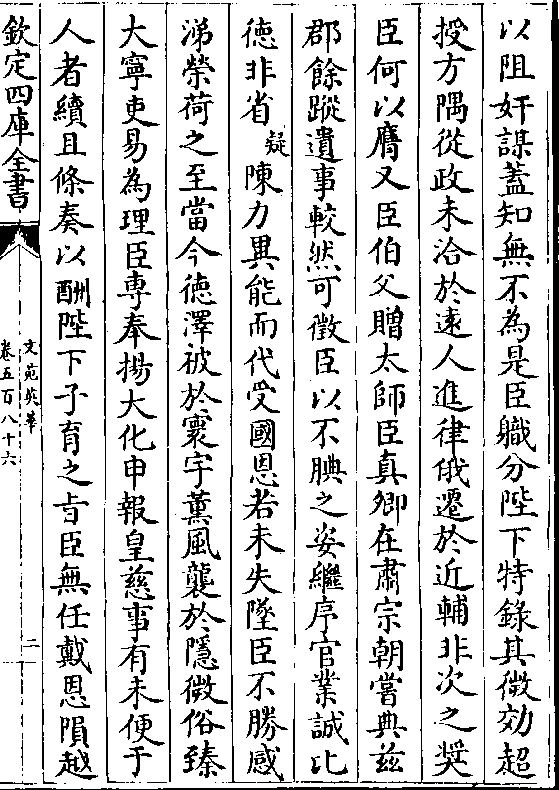 以阻奸謀蓋知無不為是臣職分陛下特錄其微効超
授方隅從政未洽於逺人進律俄遷於近輔非次之奨
臣何以膺又臣伯父贈太師臣真卿在肅宗朝嘗典兹
郡餘蹤遺事較然可徵臣以不腆之姿繼序官業誠比
徳非省疑陳力異能而代受國恩若未失墜臣不勝感
涕榮荷之至當今徳澤被於寰宇薰風襲於隱微俗臻
大寧吏易為理臣専奉揚大化申報皇慈事有未便于
人者續且條奏以酬陛下子育之㫖臣無任戴恩隕越
欽定四庫全書
文苑英華
卷五百八十六
二